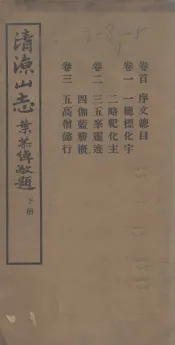 清涼山志
葉恭綽敬題
下册
卷首 序文總目
卷一 一總標化宇
二略紀化主
卷二 三五峯靈迹
四伽藍勝概
卷三 五高僧懿行